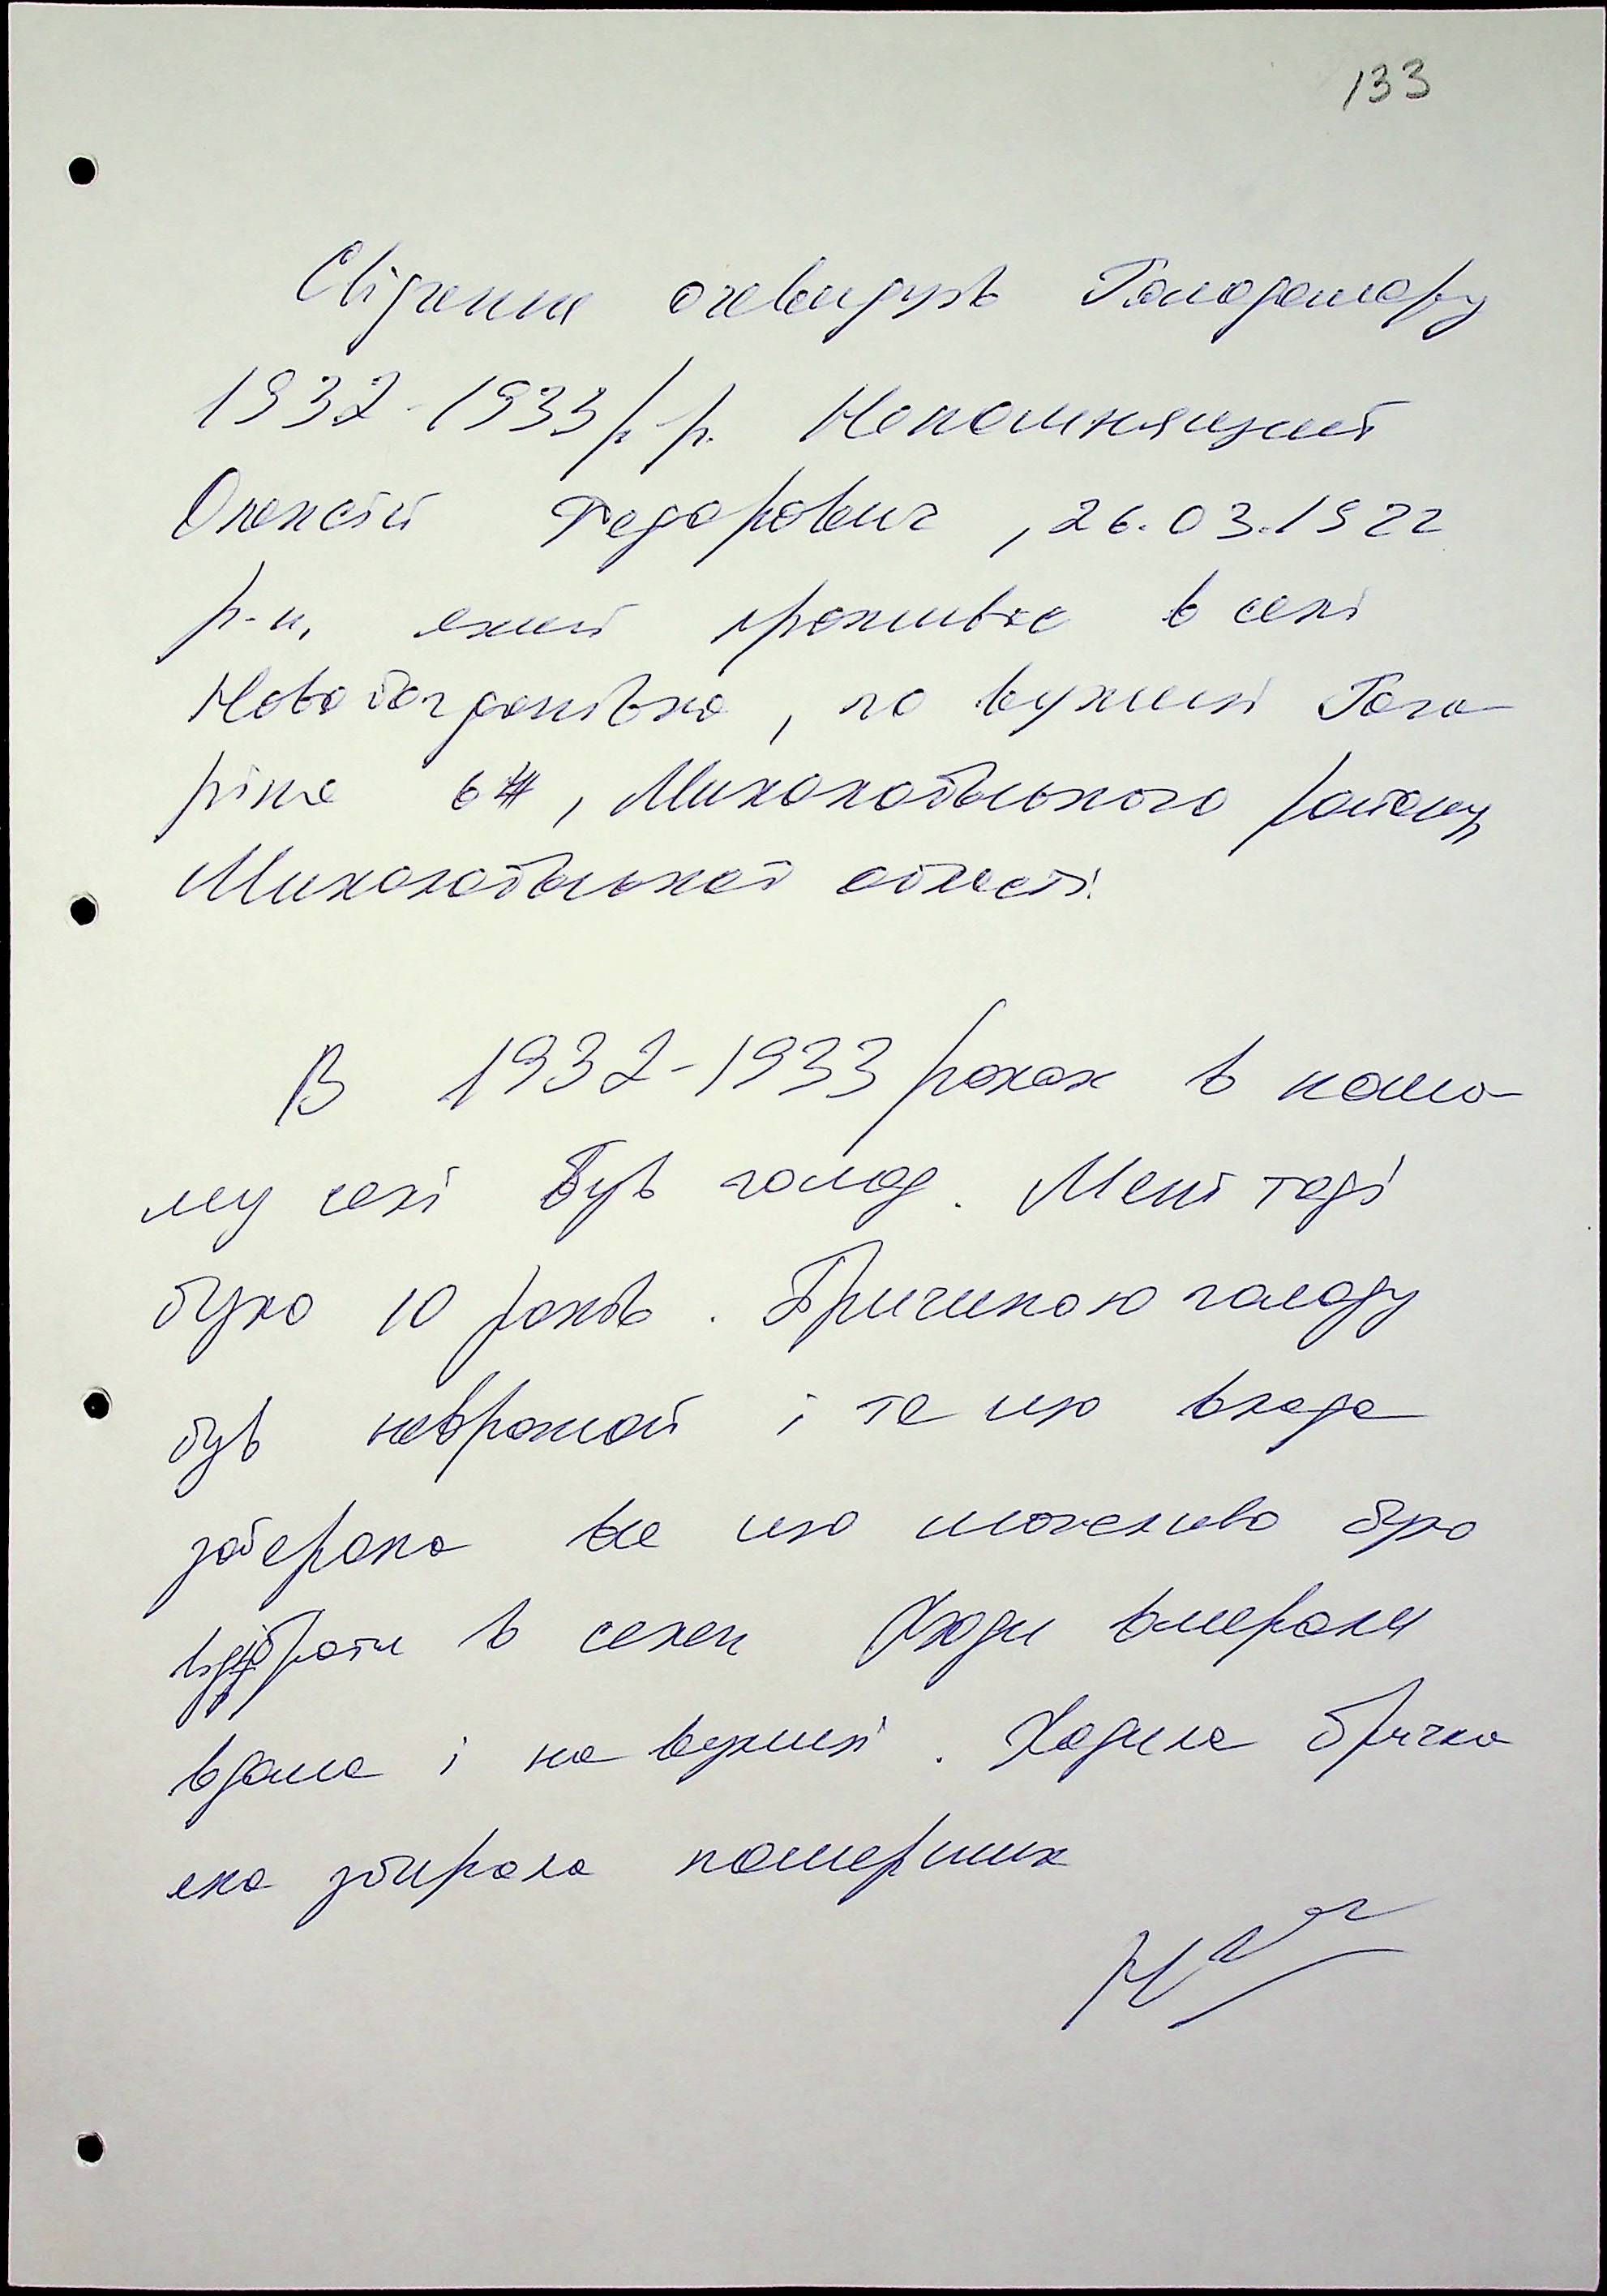 133
Свідчення очевидців Голодомору
1932-1933 р.р. Непомнящий
Олексій Федорович, 26.03.1922
р-н, який проживає в селі
Новобогданівка, по вулиці Гага
ріна 6 Миколаївського району
Миколаївської області.
В 1932-1933 роках в нашо-
му селі був голод. Мені тоді
було 10 років. Причиною голоду
був неврожай і те що влада
заберала все що можливо було
відібрати в селен Люди вмерали
вдома і на вулиці. Ходила бричка
яка збирала померших